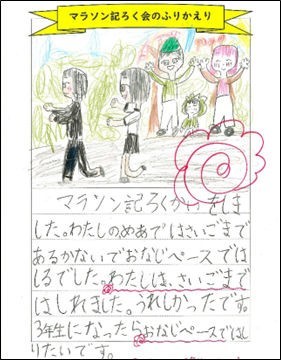 マラソン記ろく会のふりかえり
マラソン記ろくかいをしま
した。わたしのめあてはさいごまで
あるかないでおなじペースでは
しるでした。わたしは、さいごまで
はしれました。うれしかったです。
3年生になったらおなじペースではし
りたいです。